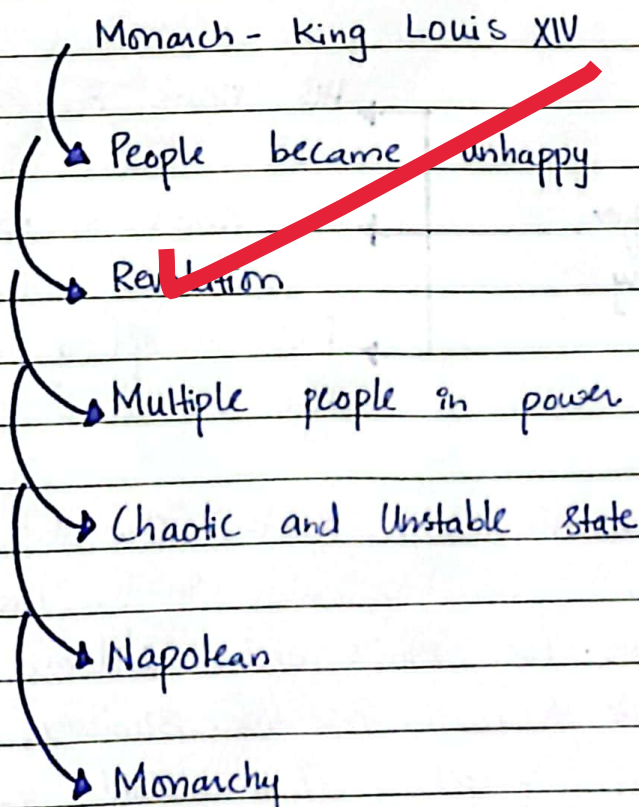 Monarch - King Louis XIV
People became unhappy
Revolution
Multiple people in power
Chaotic and Unstable state
Napolean
Monarchy